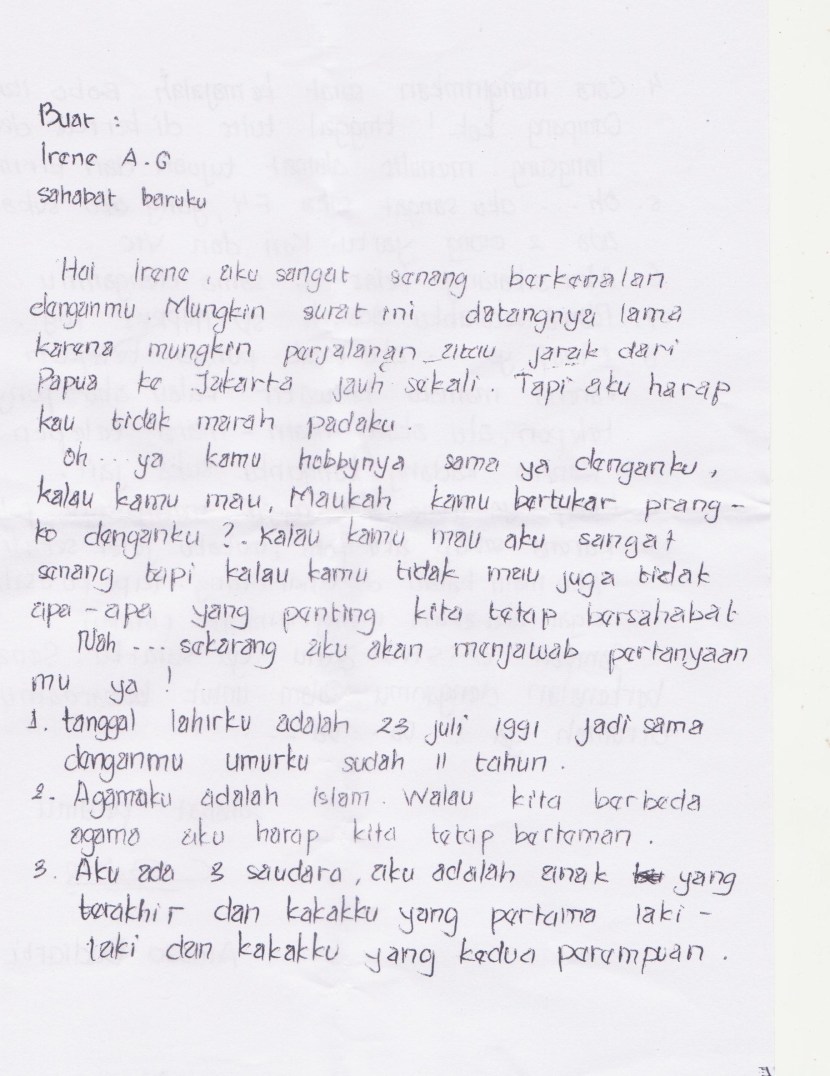 Buat :
Irene A.G
sahabat baruku
Hai Irene aku sangat senang berkenalan
denganmu Mungkin surat ini datangnya lama
karena mungkin perjalanan atau jarak dari
Papua ke Jakarta jauh sekali. Tapi aku harap
kau tidak marah padaku
Oh... ya kamu hobbynya sama ya denganku,
kalau kamu mau, Maukah kamu bertukar prang-
ko denganku ?. Kalau kamu mau aku sangat
senang tapi kalau kamu tidak mau juga tidak
apa-apa yang penting kita tetap bersahabat
Nah... sekarang aku akan menjawab pertanyaan
mu ya !
1. tanggal lahirku adalah 23 juli 1991 jadi sama
denganmu umurku sudah 11 tahun.
2. Agamaku adalah islam. Walau kita berbeda
agama aku harap kita tetap berteman.
3. Aku ada 3 saudara, aku adalah anak yang
terakhir dan kakakku yang pertama laki-
laki dan kakakku yang kedua perempuan.